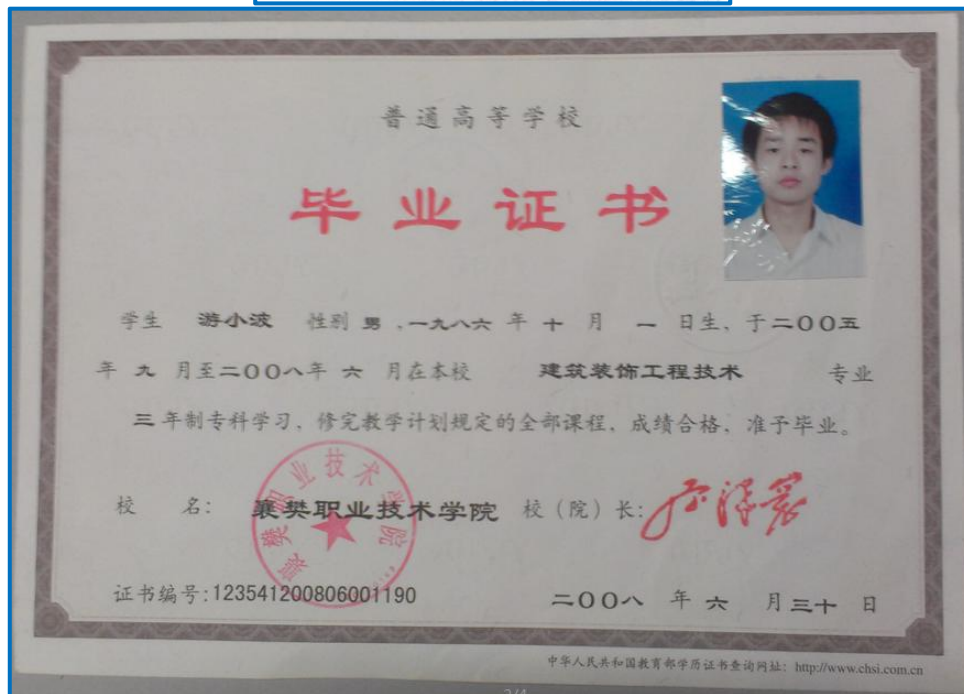 普通高等学校
毕业证书
学生 游小波 性别 男 ,一九八六 年 十 月 一 日生, 于二〇〇五
年 九 月至二〇〇八年 六 月在本校 建筑装饰工程技术 专业
三 年制专科学习, 修完教学计划规定的全部课程, 成绩合格, 准予毕业。
校 名: 襄樊职业技术学院 校(院)长:
襄樊职业技术学院
证书编号:123541200806001190 二〇〇八 年 六 月三十 日
中华人民共和国教育部学历证书查询网址: http://www.chsi.com.cn
2/4